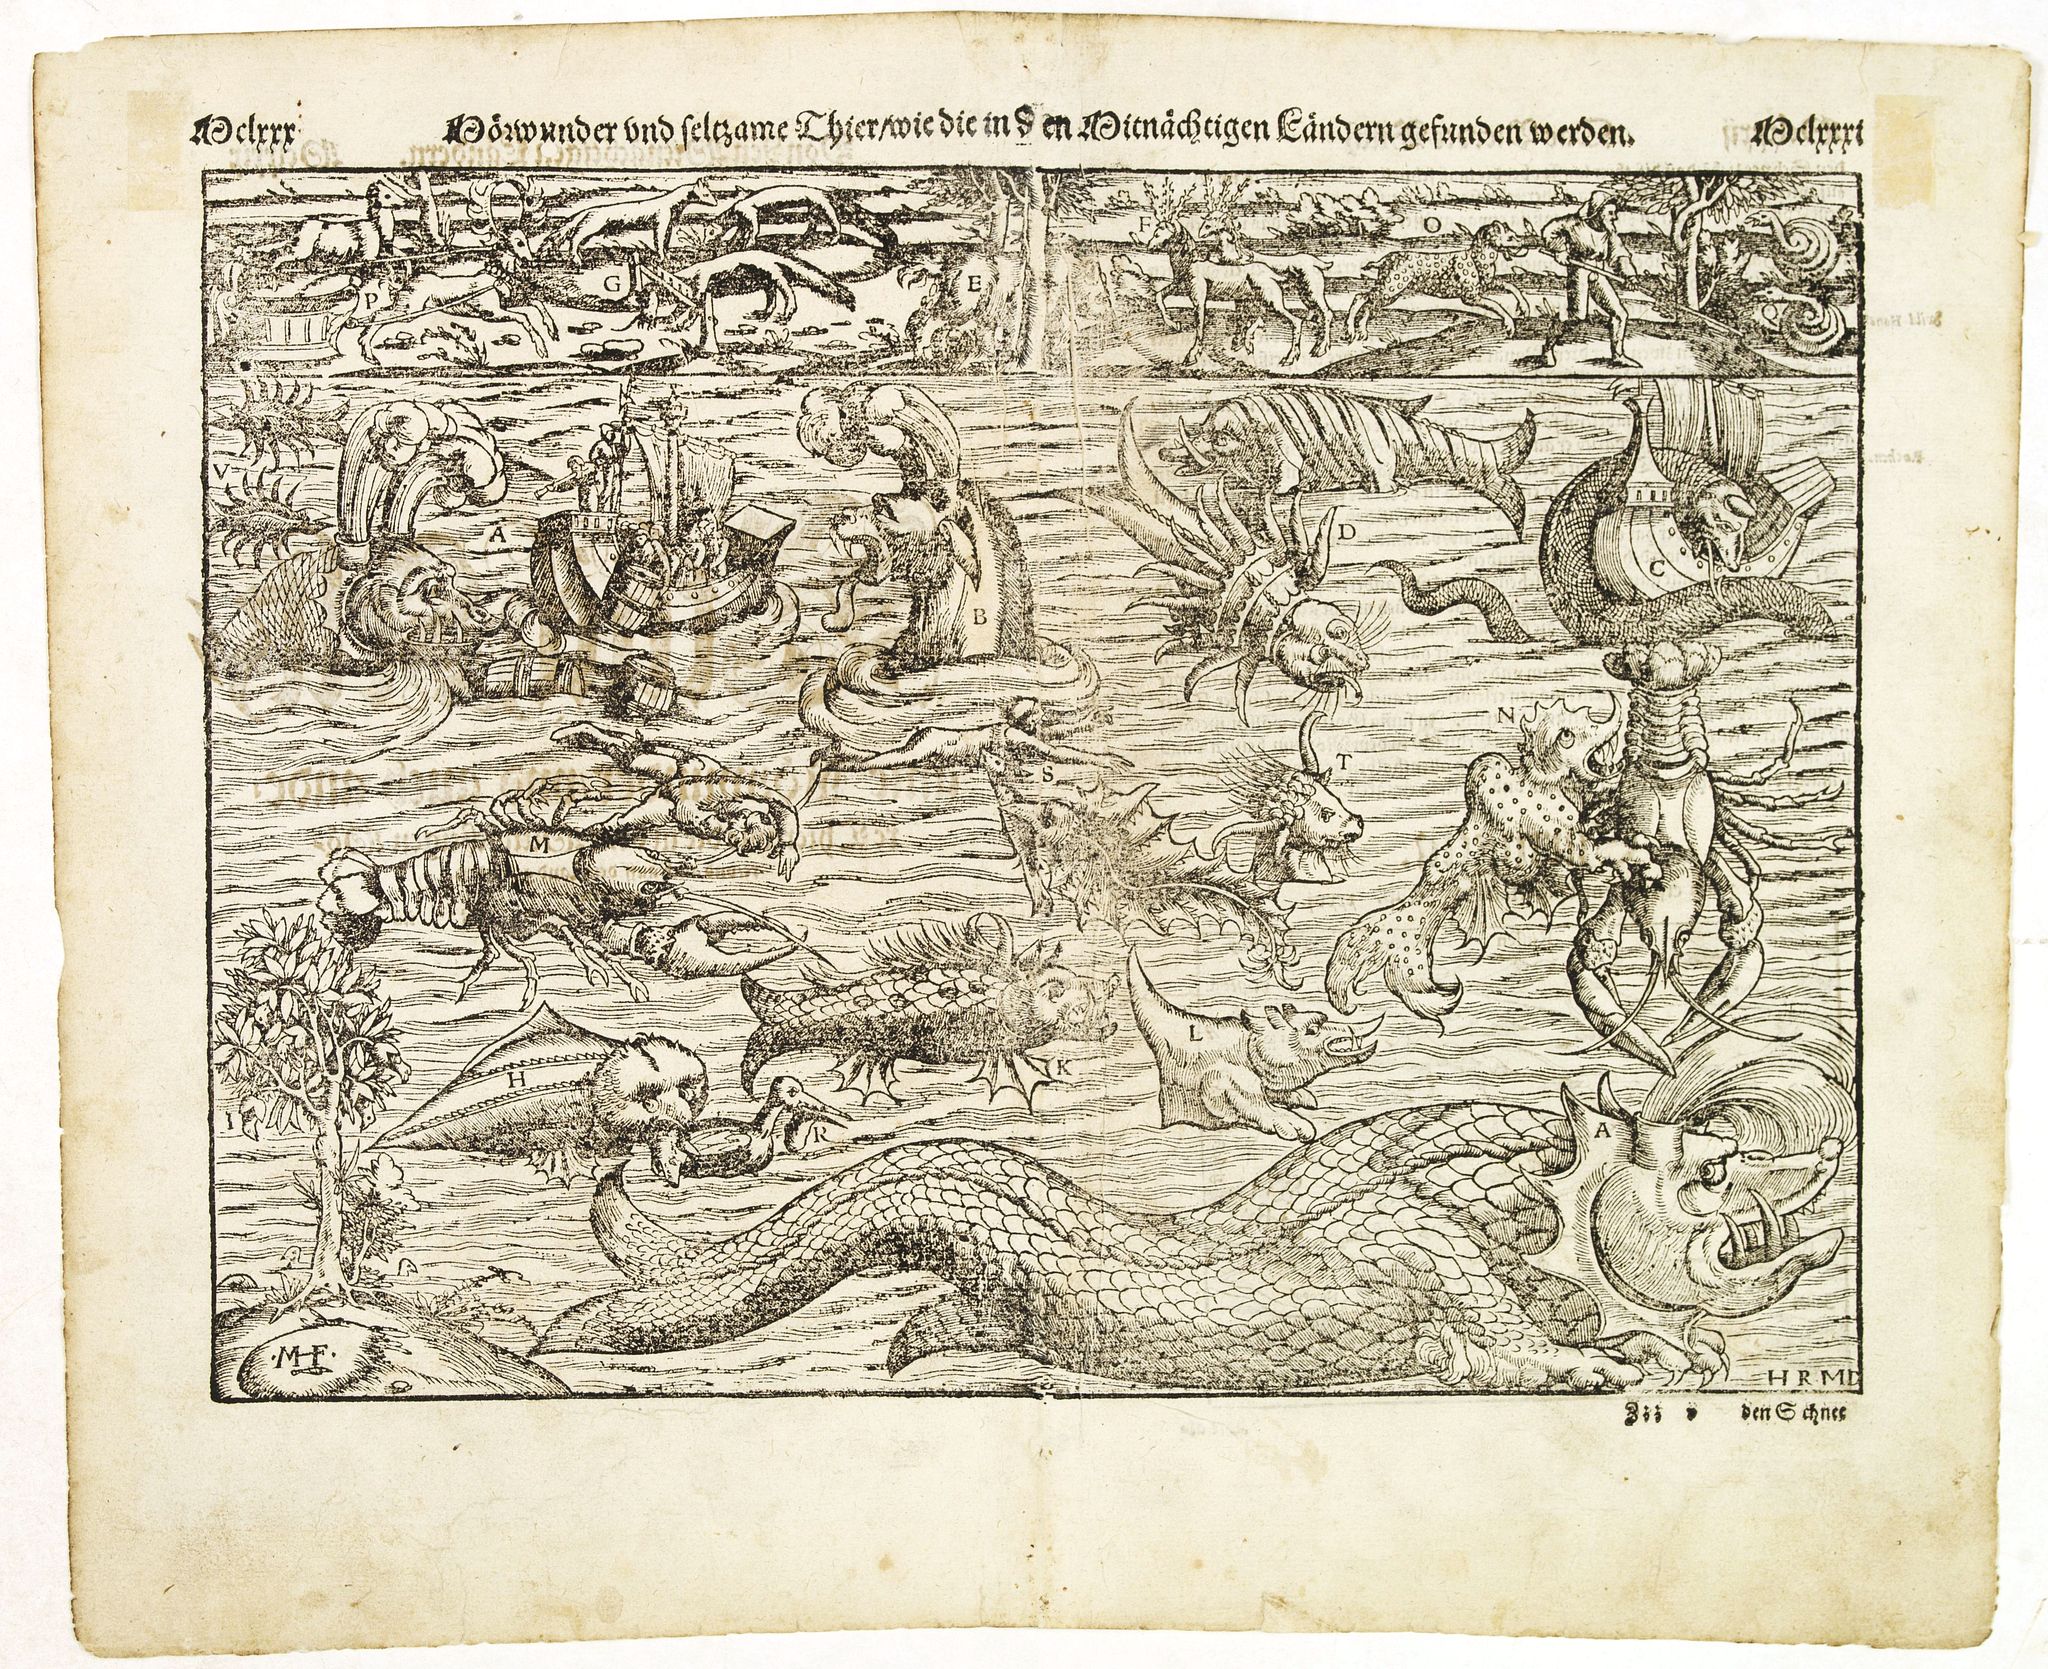 Mclxxx Mörwunder vnd seltzame Thier/wie die in den Mitnächtigen Ländern gefunden werden. Mclxxxi
F O
G E
P Q
V
A D
C
B
N
S T
M
L
H K
I R A
·MF· H R M D
Zzz v den Schnee